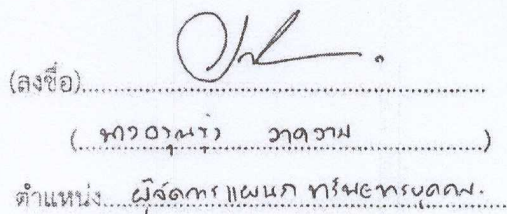 (ลงชื่อ)
( นางอรุณรุ่ง )
ตำแหน่ง ผู้จัดการแผนก ทรัพยากรบุคคล.